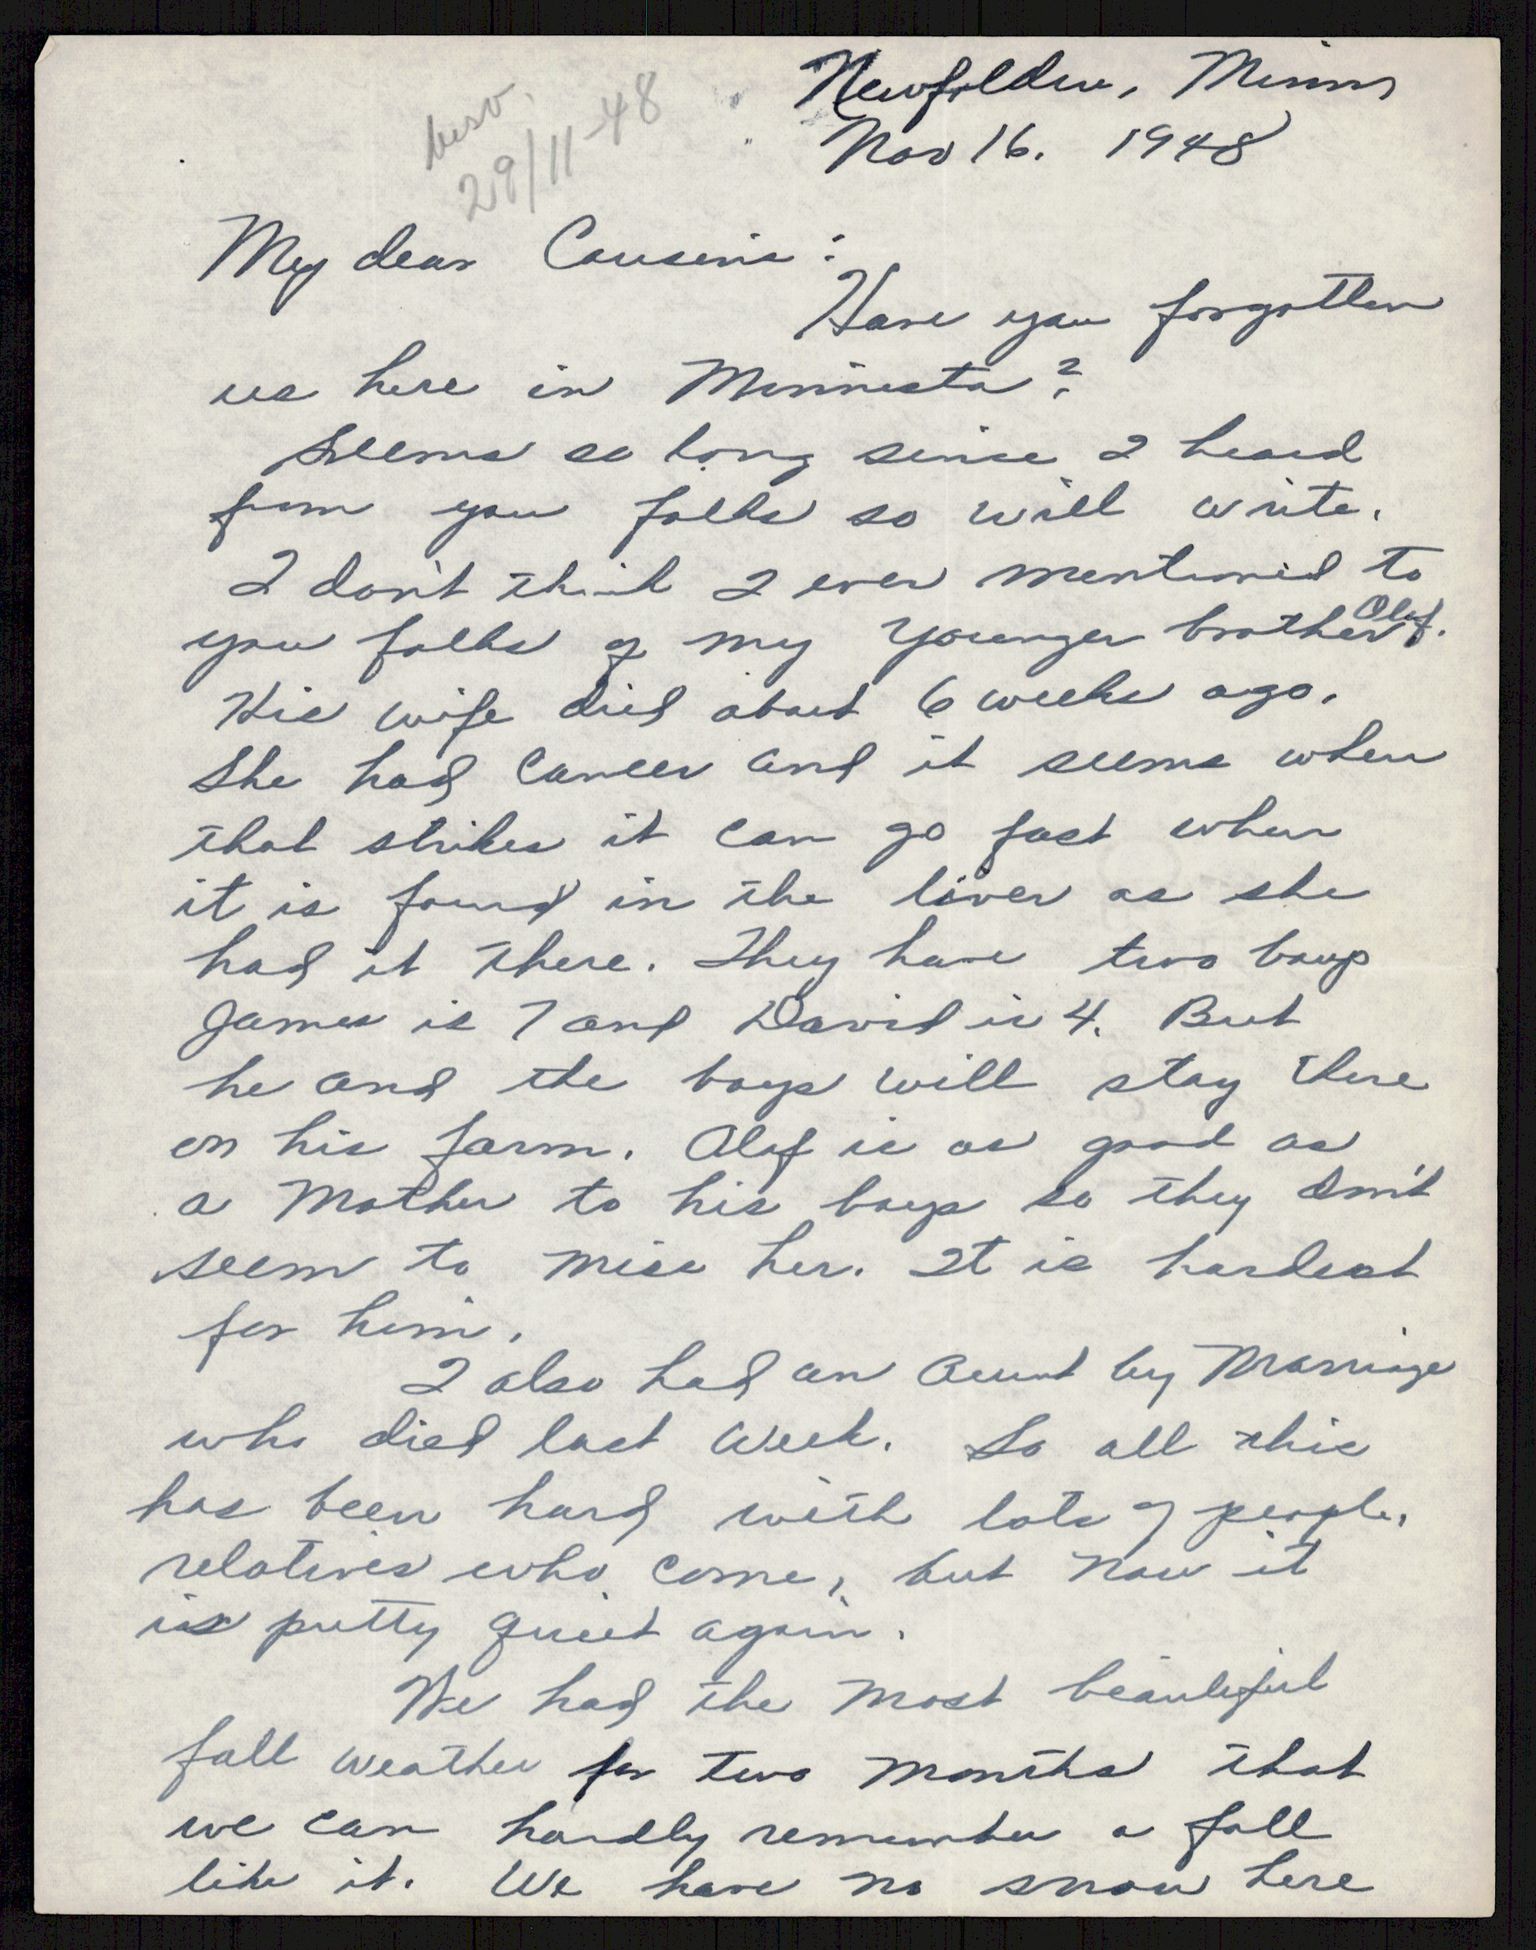 besv.
29/11-48
Newfolden, Minn
Nov 16. 1948
My dear Cousins:
Have you forgotten
us here in Minnesota?
Seems so long since I heard
from you folks so will write.
I don't think I ever mentioned to
you folks of my younger brother Olaf.
His wife died about 6 weeks ago.
She had cancer and it seems when
that strikes it can go fast when
it is found in the liver as she
had it there. They have two boys
James is 7 and David is 4. But
he and the boys will stay there
on his farm. Olaf is as good as
a Mother to his boys so they don't
seem to miss her. It is hardest
for him.
I also had an Aunt by Marriage
who died last week. So all this
has been hard with lots of people,
relatives who come, but now it
is pretty quiet again.
We had the most beautiful
fall weather for two months that
we can hardly remember a fall
like it. We have no snow here